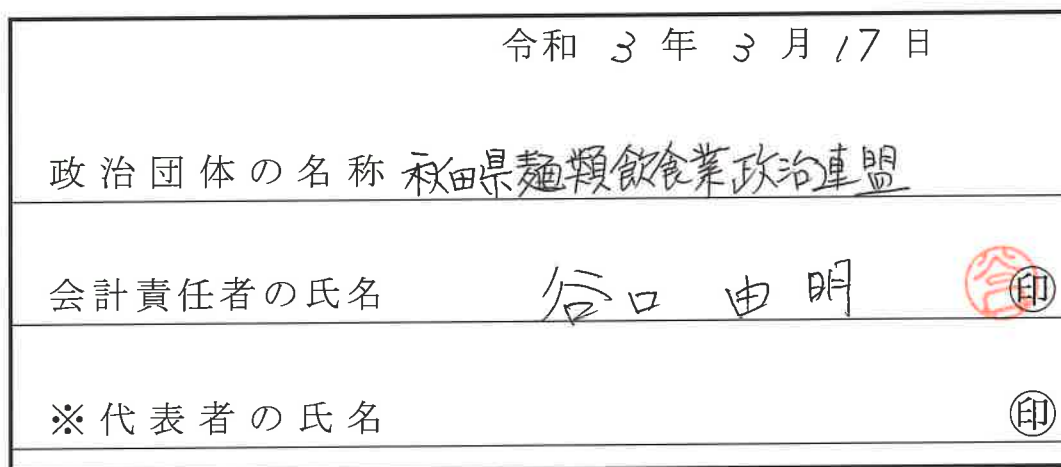 令和 3 年 3 月 17 日
政治団体の名称 秋田県麺類飲食業政治連盟
会計責任者の氏名 谷口 由明 ㊞
※代表者の氏名 ㊞